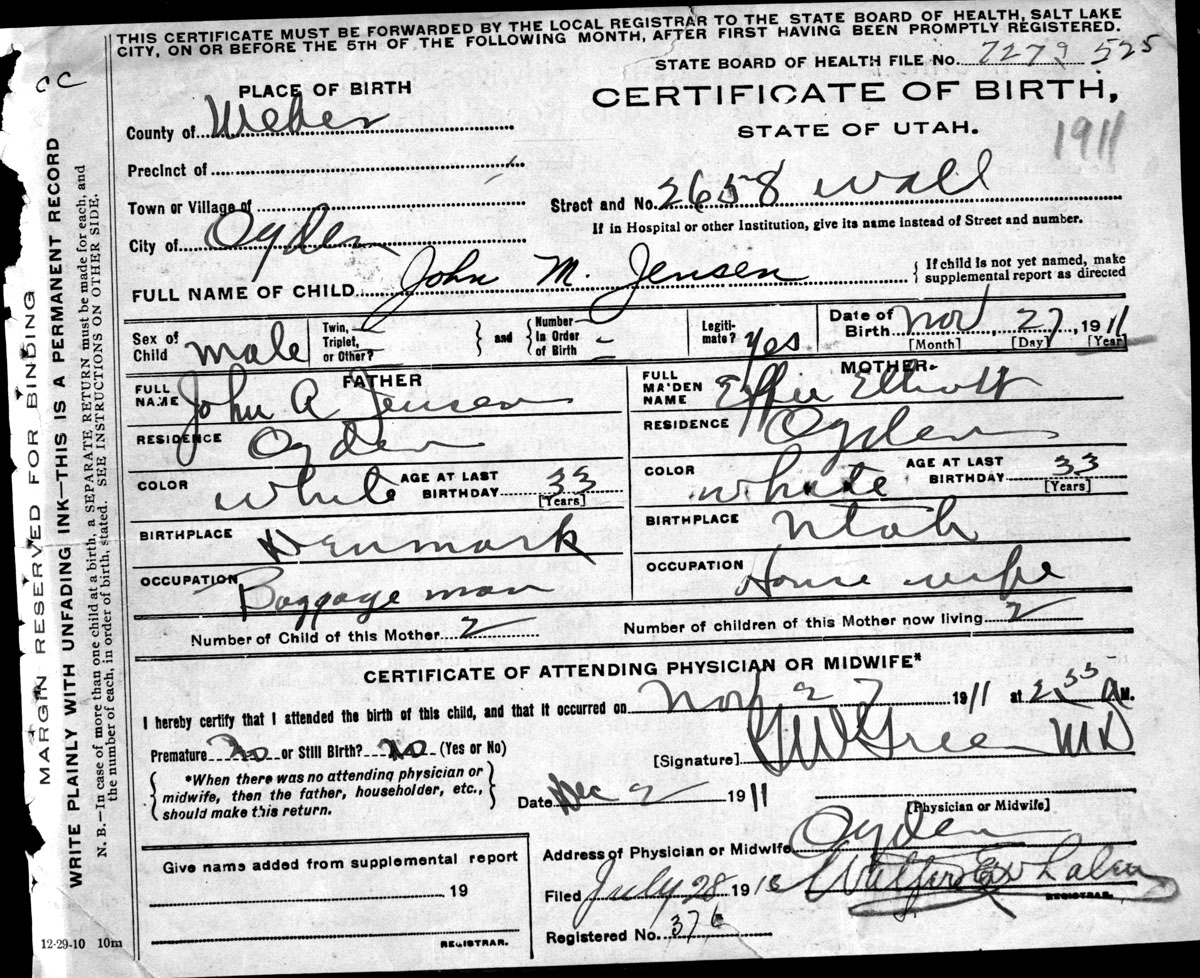 THIS CERTIFICATE MUST BE FORWARDED BY THE LOCAL REGISTRAR TO THE STATE BOARD OF HEALTH, SALT LAKE
CITY, ON OR BEFORE THE 5TH OF THE FOLLOWING MONTH, AFTER FIRST HAVING BEEN PROMPTLY REGISTERED.
STATE BOARD OF HEALTH FILE No. 7279 525
PLACE OF BIRTH
CERTIFICATE OF BIRTH,
STATE OF UTAH.
1911
County of Weber
Precinct of
Town or Village of
Street and No. 2658 Wall
If in Hospital or other Institution, give its name instead of Street and number.
City of Ogden
FULL NAME OF CHILD John M. Jensen
If child is not yet named, make
supplemental report as directed
Sex of Child male
Twin, Triplet, or Other?
and
Number In Order of Birth
Legiti-mate? yes
Date of Birth Nov 27, 1911
[Month] [Day] [Year]
FATHER
FULL NAME John A Jensen
RESIDENCE Ogden
COLOR White
AGE AT LAST BIRTHDAY 33
[Years]
BIRTHPLACE Denmark
OCCUPATION Baggage man
MOTHER
FULL MAIDEN NAME Effie Elliott
RESIDENCE Ogden
COLOR White
AGE AT LAST BIRTHDAY 33
[Years]
BIRTHPLACE Utah
OCCUPATION House wife
Number of Child of this Mother 2
Number of children of this Mother now living 2
CERTIFICATE OF ATTENDING PHYSICIAN OR MIDWIFE*
I hereby certify that I attended the birth of this child, and that it occurred on Nov 27 1911 at 2 55 a M.
Premature no or Still Birth? no (Yes or No)
*When there was no attending physician or
midwife, then the father, householder, etc.,
should make this return.
[Signature] Green MD
Date Dec 2 1911
[Physician or Midwife]
Address of Physician or Midwife Ogden
Give name added from supplemental report
19
REGISTRAR.
Filed July 28 191
REGISTRAR.
Registered No. 376
12-29-10 10m
MARGIN RESERVED FOR BINDING
WRITE PLAINLY WITH UNFADING INK—THIS IS A PERMANENT RECORD
N. B.—In case of more than one child at a birth, a SEPARATE RETURN must be made for each, and
the number of each, in order of birth, stated. SEE INSTRUCTIONS ON OTHER SIDE.